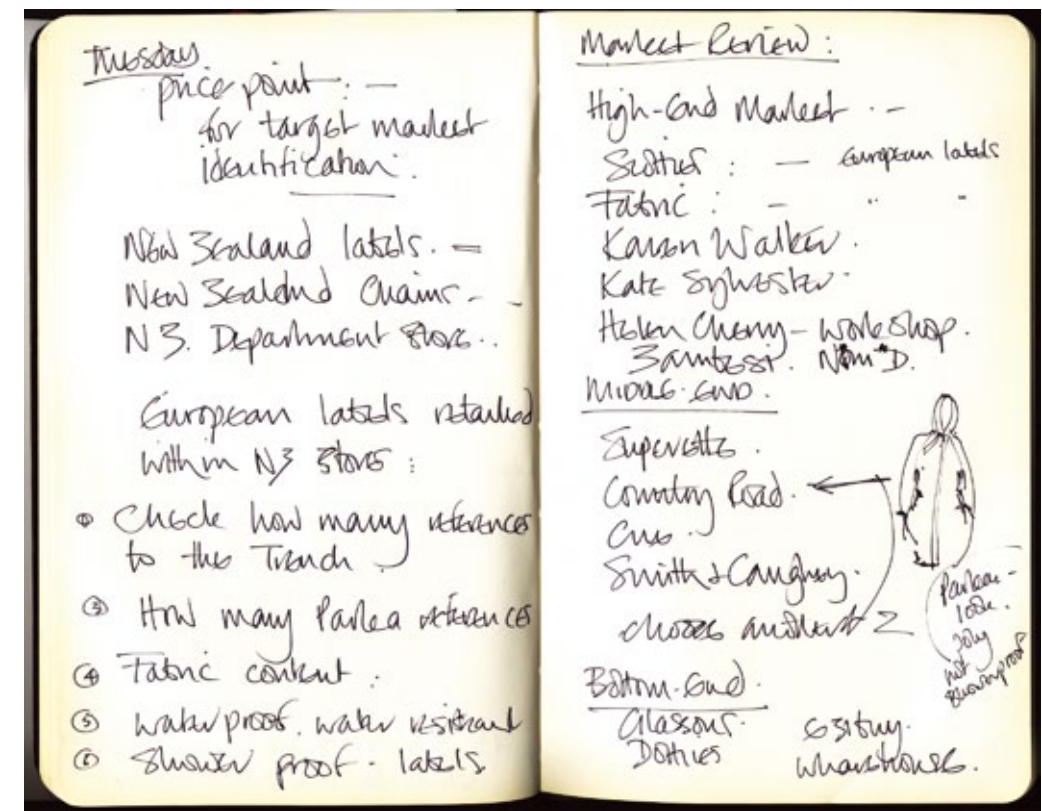 Tuesday
price point : —
for target market
identification.
New Zealand labels. —
New Zealand Chains - -
N Z. Department Stores..
European labels retailed
within NZ stores :
Check how many references
to the Trench.
③ How many Parka references
④ Fabric content.
⑤ waterproof. water resistant
⑥ Shower proof - labels
Market Review :
High-End Market . -
Scotties : — European labels
Fabric : - " -
Karen Walker.
Kate Sylvester.
Helen Cherry - Workshop.
Zambesi. Nom*D.
Middle-End.
Superette.
Country Road.
Cue
Smith & Caughey.
choose another 2
Parka -
look.
poly
not
showerproof
Bottom-End.
Glassons.
Dotties
warehouse.